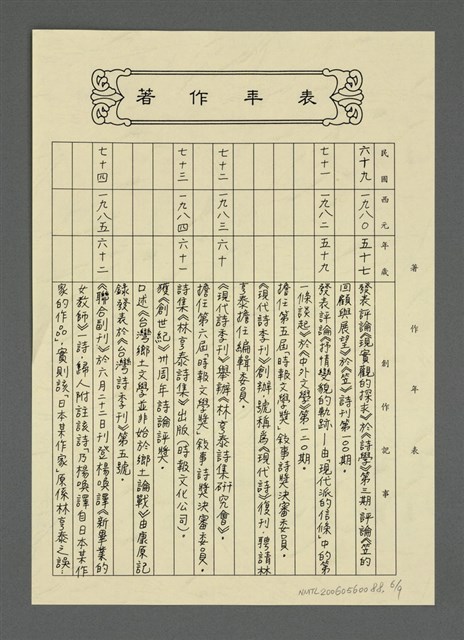 表年作著
民國 西元 年歲 著作創作記事
著作年表
六十九 一九八〇 五十七 發表評論現實觀的探求》於《詩學》第三期.評論《笠的
回顧與展望》於《笠》詩刊第一〇〇期.
七十一 一九八二 五十九 發表評論《抒情變貌的軌跡——由「現代派的信條」中的第
一條談起》於《中外文學》第一二〇期.
擔任第五屆「時報文學獎」敘事詩獎決審委員.
《現代詩季刊》創辦,號稱為《現代詩》復刊,聘請林
亨泰擔任編輯委員.
七十二 一九八三 六十 《現代詩季刊》舉辦《林亨泰詩集研究會》.
擔任第六屆「時報文學獎」敘事詩獎決審委員.
七十三 一九八四 六十一 詩集《林亨泰詩集》出版(時報文化公司).
獲《創世記》卅周年詩論評獎.
口述《台灣鄉土文學並非始於鄉土論戰》由康原記
錄發表於《台灣詩季刊》第五號.
七十四 一九八五 六十二 《聯合副刊》於六月二十二日刊登楊喚譯《新畢業的
女教師》詩,歸人附註該詩「乃楊喚譯自日本某作
家的作品」,實則該「日本某作家」原係林亨泰之誤.
NMTL20060560088. 6/9